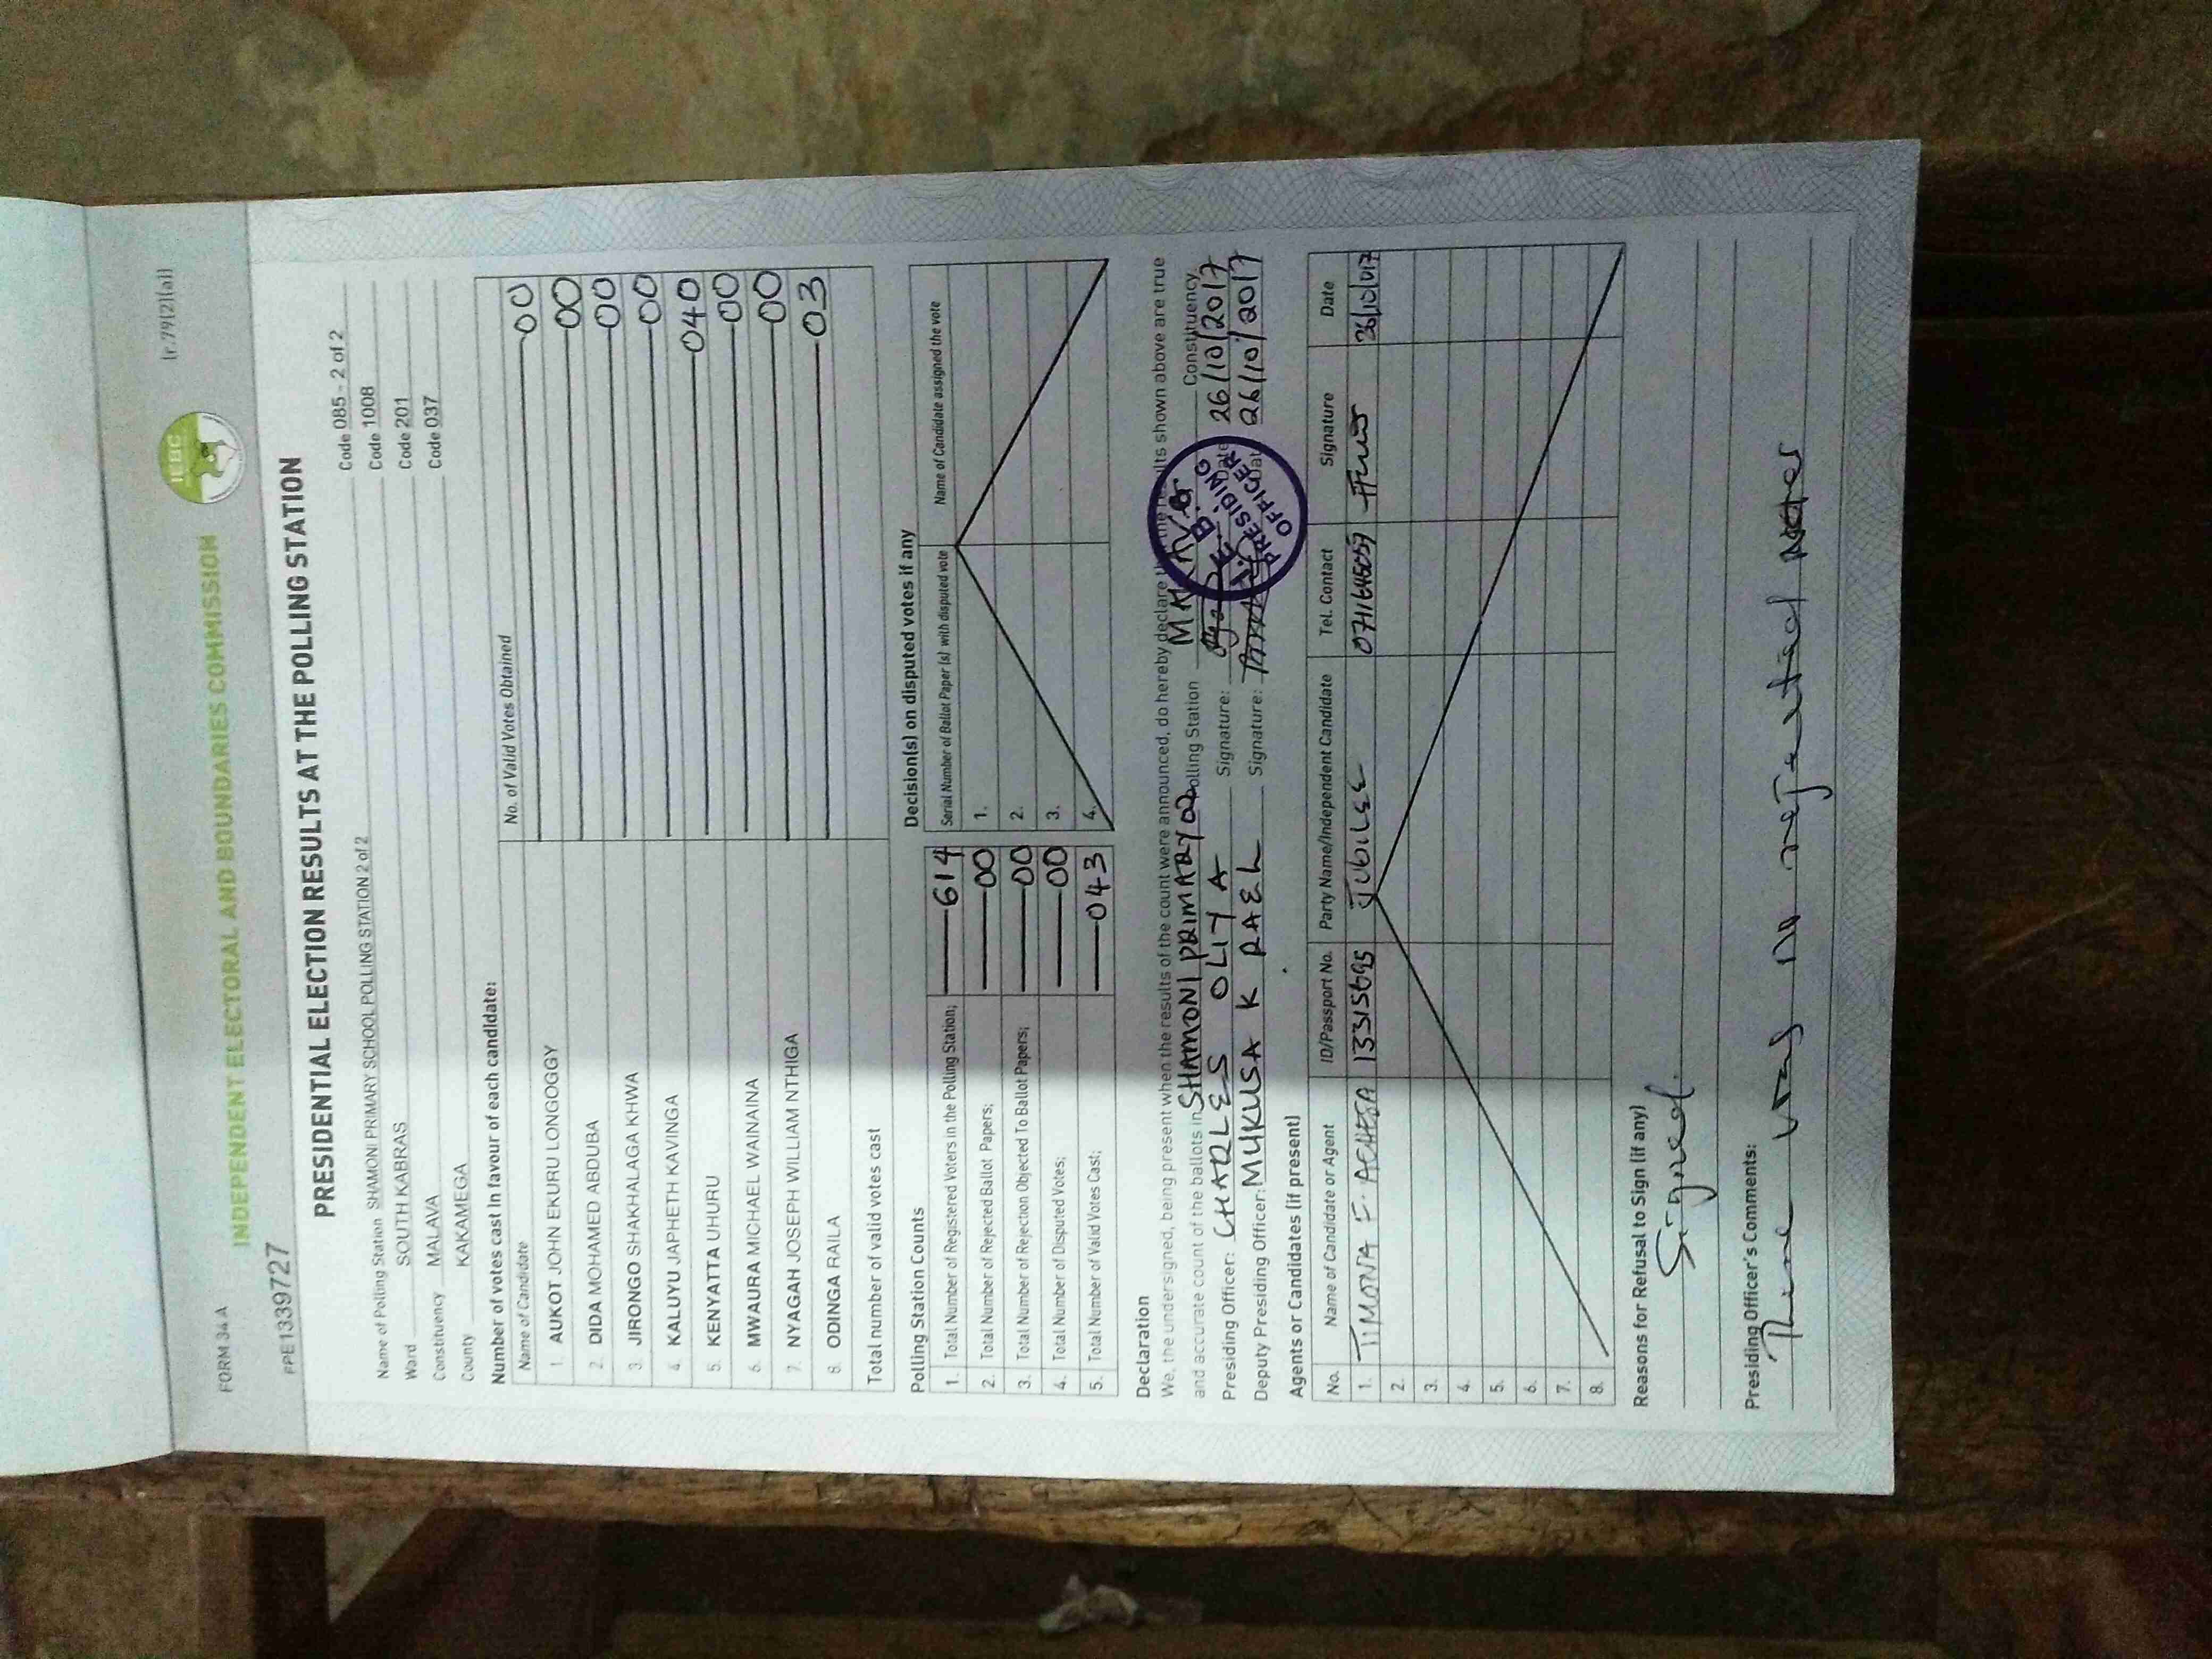 FORM 34A
INDEPENDENT ELECTORAL AND BOUNDARIES COMMISSION
IEBC
(r.79(2)(a))
PPE1339727
PRESIDENTIAL ELECTION RESULTS AT THE POLLING STATION
Name of Polling Station SHAMONI PRIMARY SCHOOL POLLING STATION 2 of 2 Code 085 - 2 of 2
Ward SOUTH KABRAS Code 1008
Constituency MALAVA Code 201
County KAKAMEGA Code 037
Number of votes cast in favour of each candidate:
Name of Candidate No. of Valid Votes Obtained
1. AUKOT JOHN EKURU LONGOGGY 00
2. DIDA MOHAMED ABDUBA 00
3. JIRONGO SHAKHALAGA KHWA 00
4. KALUYU JAPHETH KAVINGA 00
5. KENYATTA UHURU 040
6. MWAURA MICHAEL WAINAINA 00
7. NYAGAH JOSEPH WILLIAM NTHIGA 00
8. ODINGA RAILA 03
Total number of valid votes cast
Polling Station Counts
1. Total Number of Registered Voters in the Polling Station; 614
2. Total Number of Rejected Ballot Papers; 00
3. Total Number of Rejection Objected To Ballot Papers; 00
4. Total Number of Disputed Votes; 00
5. Total Number of Valid Votes Cast; 043
Decision(s) on disputed votes if any
Serial Number of Ballot Paper (s) with disputed vote Name of Candidate assigned the vote
1.
2.
3.
4.
Declaration
We, the undersigned, being present when the results of the count were announced, do hereby declare the results shown above are true
and accurate count of the ballots in SHAMONI PRIMARY 02 Polling Station Constituency
Presiding Officer: CHARLES OLIYA Signature: Date 26/10/2017
Deputy Presiding Officer: MUKUSA K RAEL Signature: Dat 26/10/2017
PRESIDING OFFICER
Agents or Candidates (if present)
No. Name of Candidate or Agent ID/Passport No. Party Name/Independent Candidate Tel. Contact Signature Date
1. TIMONA F. ACHESA 13315695 JUBILEE 26/10/017
2.
3.
4.
5.
6.
7.
8.
Reasons for Refusal to Sign (if any)
Signed.
Presiding Officer's Comments:
There was no